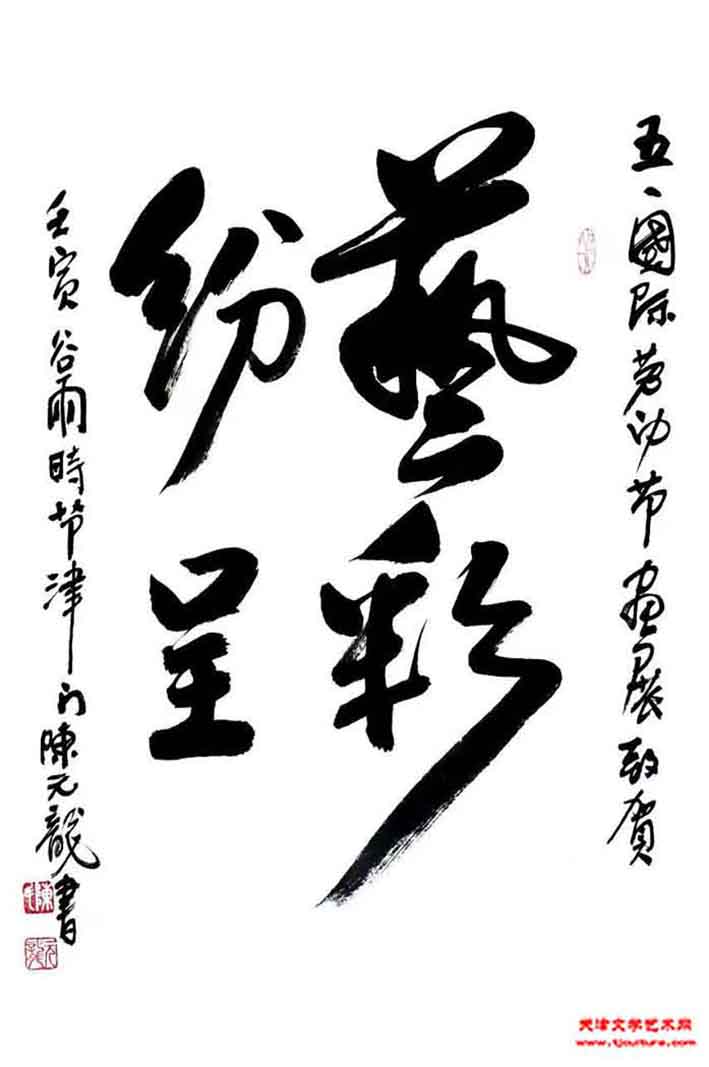 五一國际劳动节畫展致賀
藝彩
纷呈
壬寅谷雨時节津门陳元龍書
天津文学艺术网
www.tjculture.com